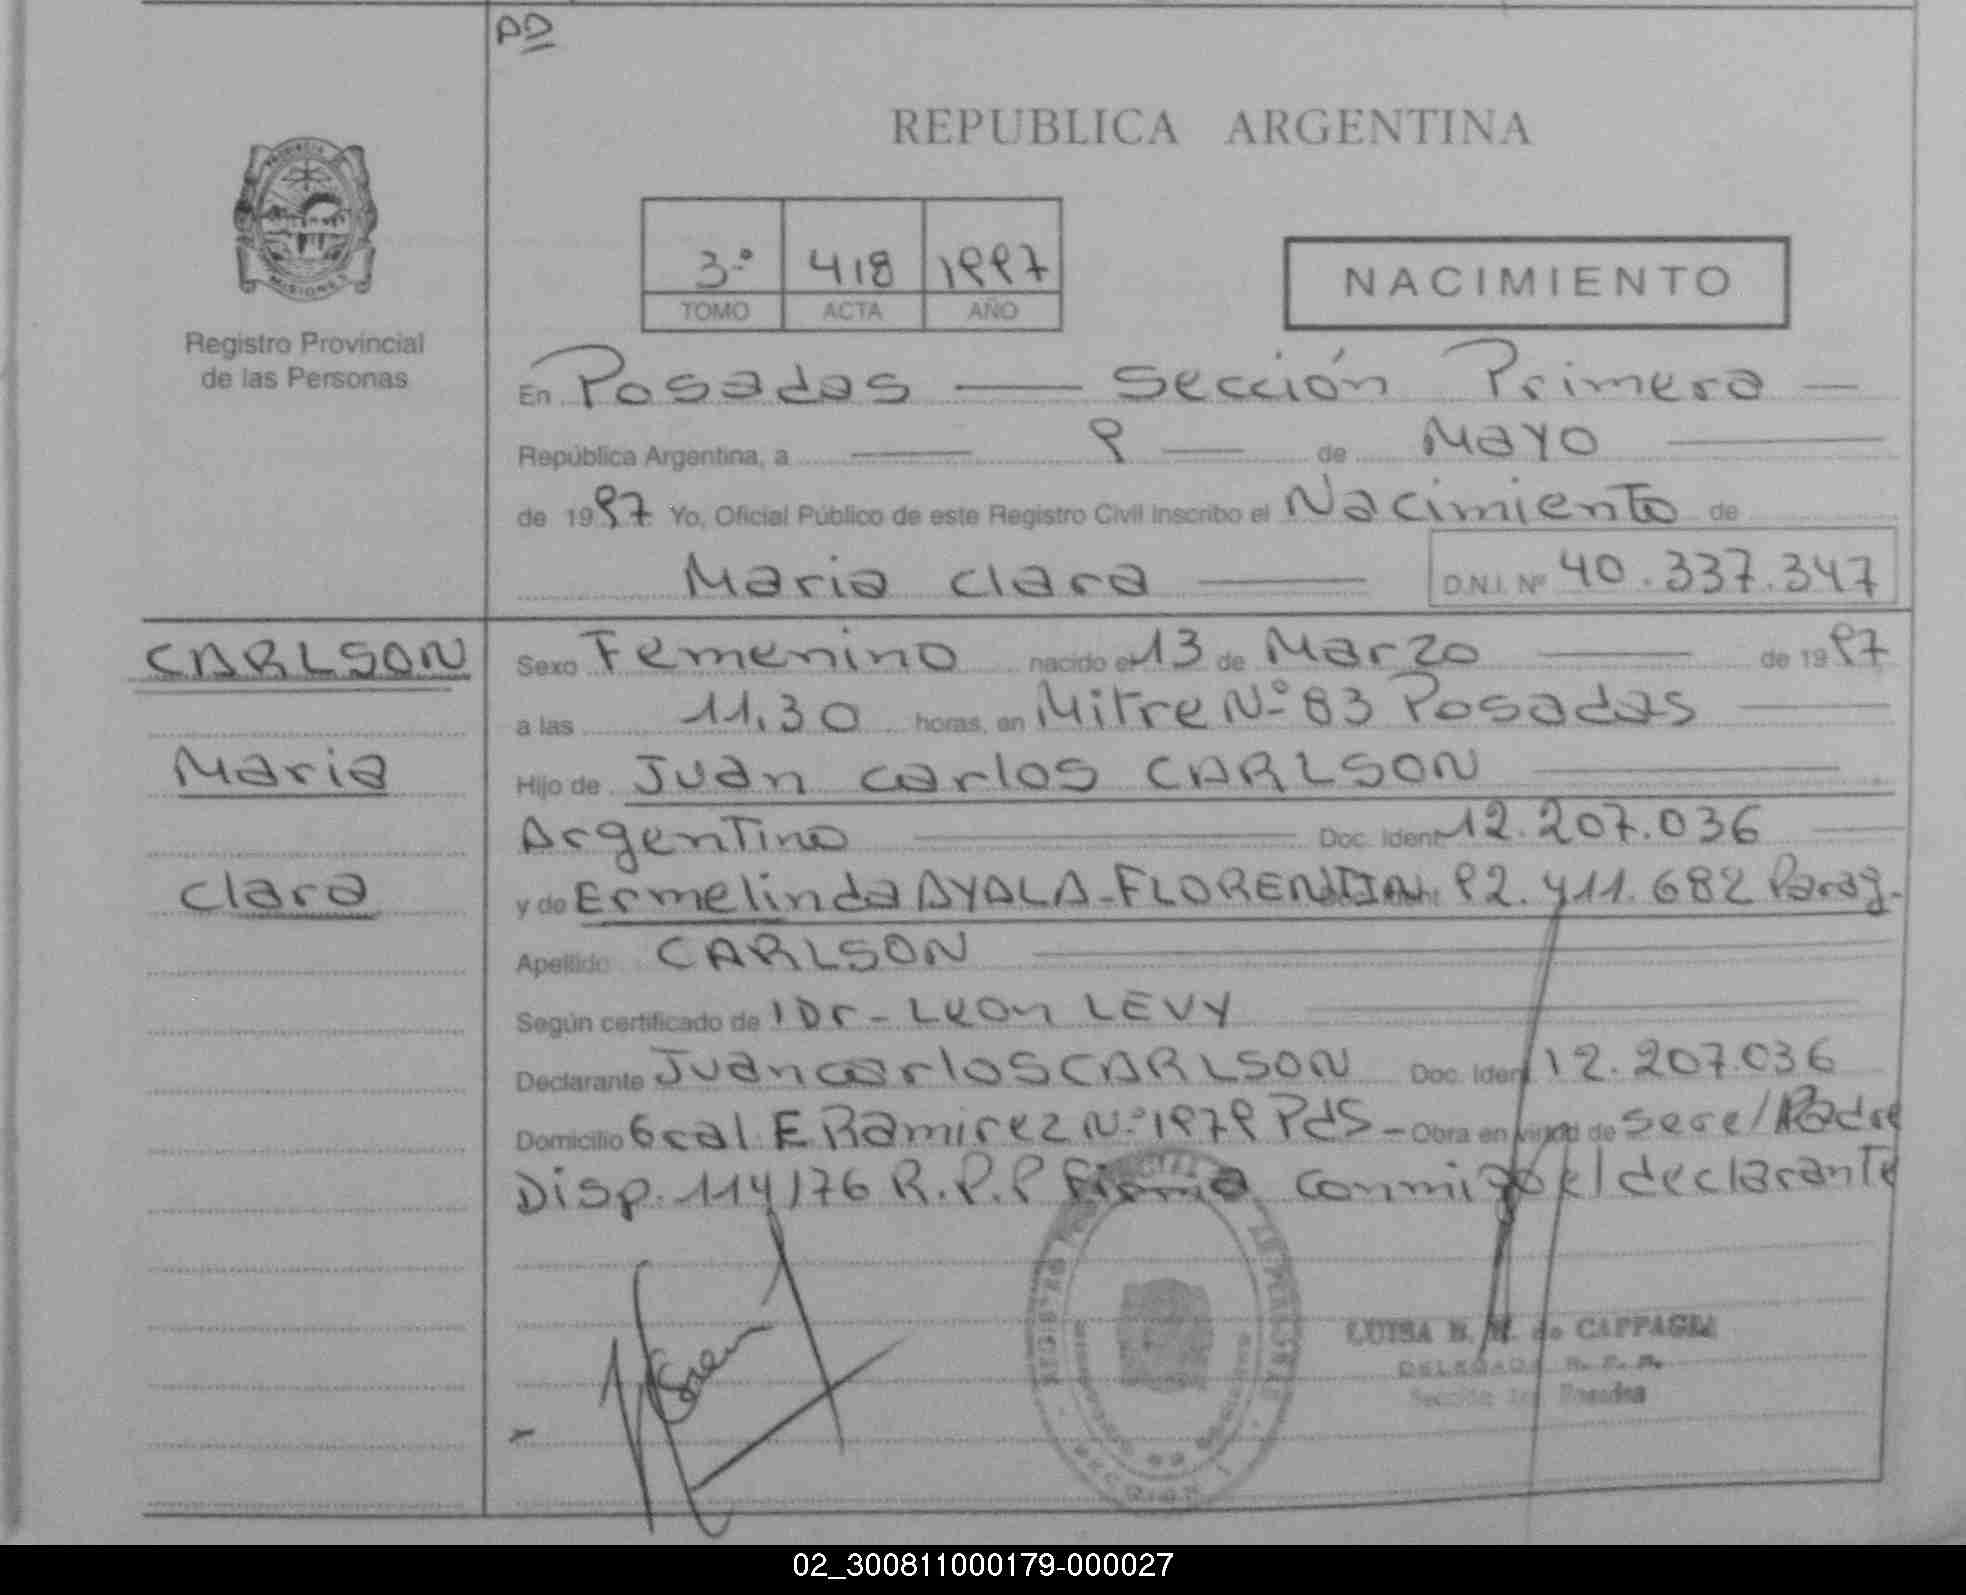 PD
REPUBLICA ARGENTINA
PROVINCIA DE
MISIONES
Registro Provincial
de las Personas
3.º 418 1997
TOMO ACTA AÑO
NACIMIENTO
En Posadas — Sección Primera —
República Argentina, a — 9 — de Mayo —
de 1997 Yo, Oficial Público de este Registro Civil inscribo el Nacimiento de
Maria Clara — D.N.I. Nº 40.337.347
CARLSON
Maria
Clara
Sexo Femenino nacido el 13 de Marzo — de 1997
a las 11,30 horas, en Mitre Nº 83 Posadas —
Hijo de Juan Carlos CARLSON —
Argentino — Doc. Ident. 12.207.036 —
y de Ermelinda AYALA-FLORENTIN 92.411.682 Parag-
Apellido CARLSON —
Según certificado de Dr- Leon LEVY —
Declarante Juan Carlos CARLSON Doc. Ident 12.207.036
Domicilio Gral E Ramirez Nº 1979 Pds - Obra en virtud de ser el Padre
Disp. 114/76 R.P.P Firma conmigo el declarante
LUISA de CAPPAGLI
DELEGADA R. P. P.
Sección 1ra Posadas
02_300811000179-000027